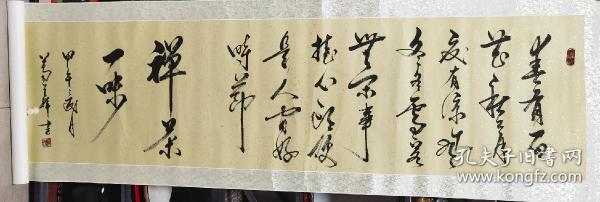 春有百
花秋有月
夏有凉风
冬有雪若
無闲事
挂心头便
是人间好
時節
禪茶
一味
甲午 月
书
孔夫子旧书网
www.kongfz.com